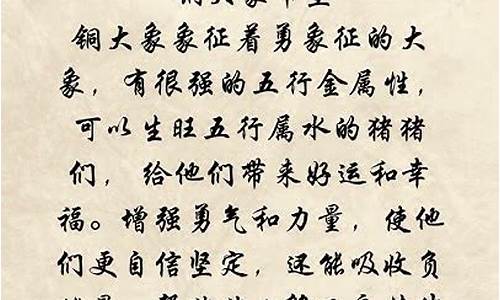 铜大象象征着勇象征的大
象，有很强的五行金属性，
可以生旺五行属水的猪猪
们，给他们带来好运和幸
福。增强勇气和力量，使他
们更自信坚定，还能吸收负